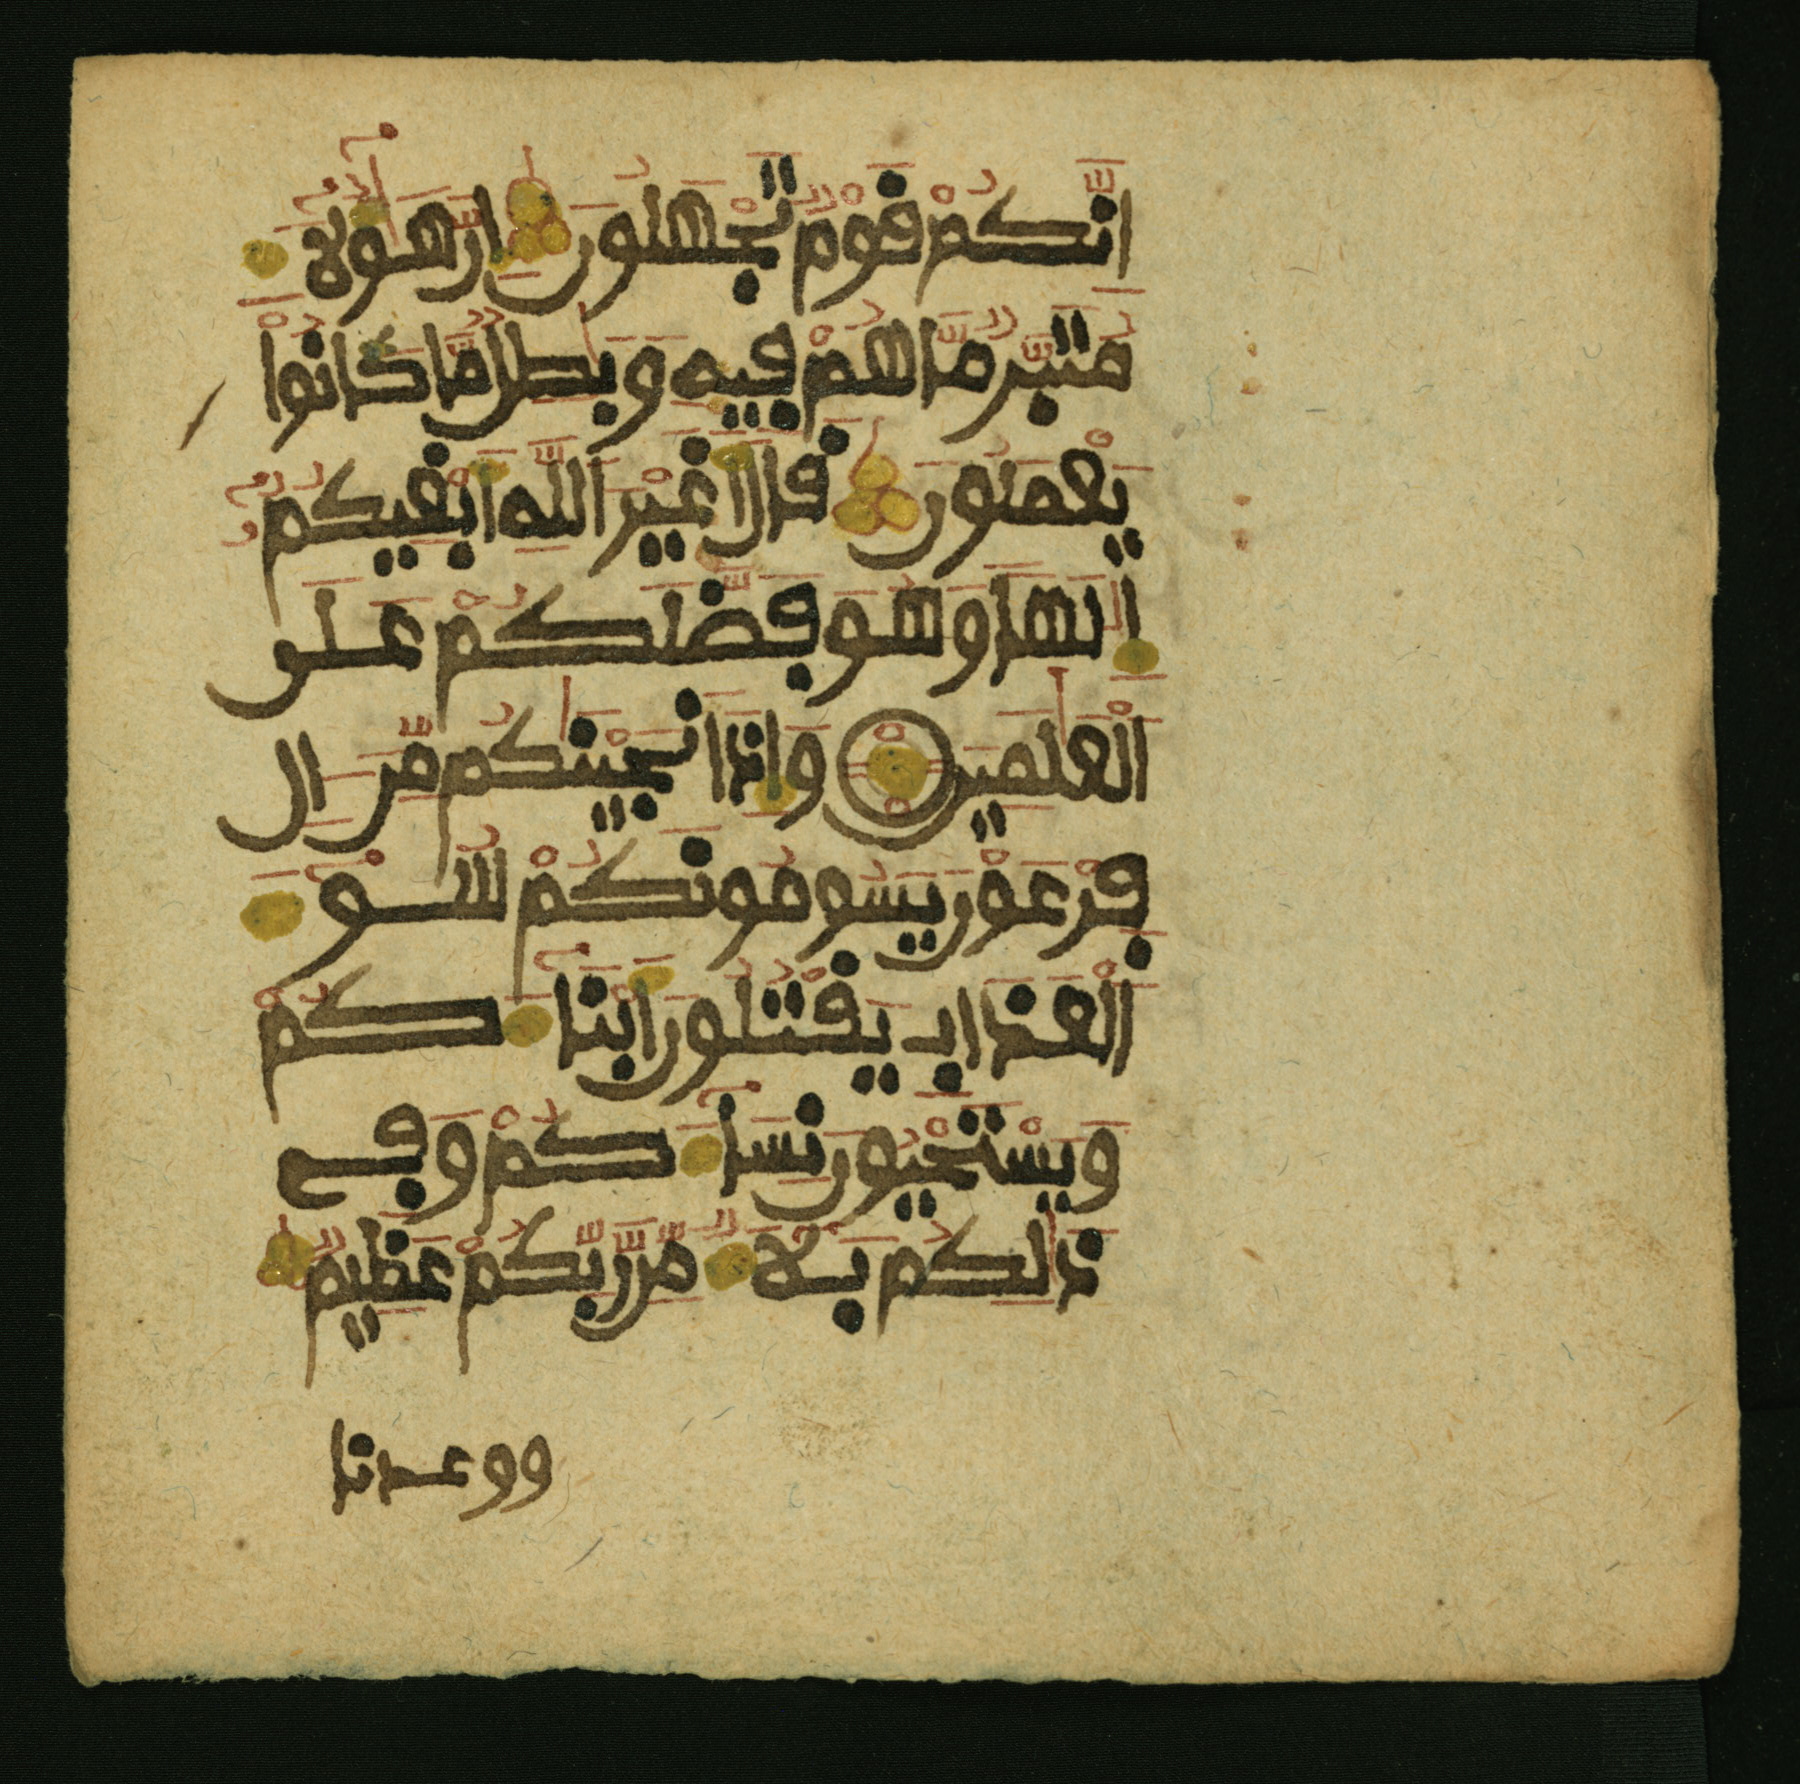 إنكم قوم تجهلون إن هولا
متبر ما هم فيه وبطل ما كانوا
يعملون قال أغير الله أبغيكم
إلها وهو فضلكم على
العلمين وإذ انجينكم من ال
فرعون يسومونكم سو
العذاب يقتلون أبنا كم
ويستحيون نسا كم وفي
ذلكم بلا من ربكم عظيم
ووعدنا